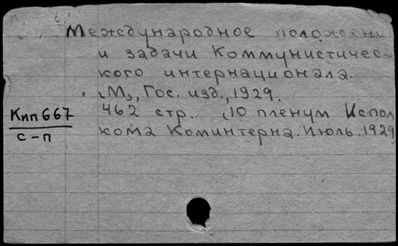 Международное положени
и задачи Коммунистичес-
кого интернационала.
М., Гос. изд., 1929.
462 стр. 10 пленум Испол
кома Коминтерна. Июль. 1929
Кип 667
с-п